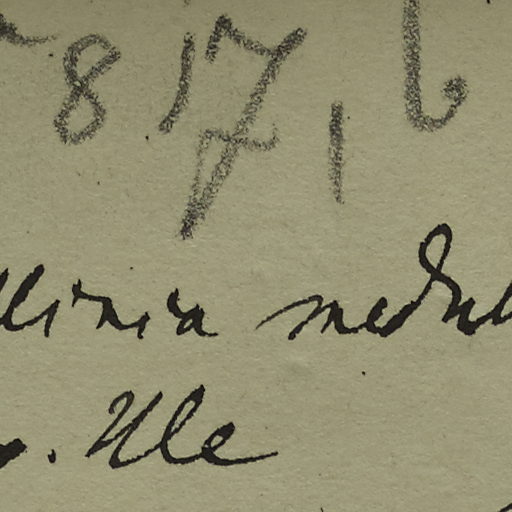 817,6
llinia medul
. Ule